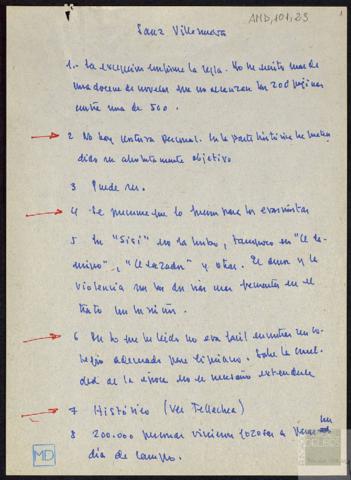 AMD, 101, 23
Sanz Villanueva
1.- La excepción confirma la regla. Yo he escrito más de
una docena de novelas que no alcanzan las 200 páginas
entre una de 500.
2 No hay postura personal. En la parte histórica he
sido absolutamente objetivo
3 Puede ser.
4 Se presume que lo
5 En "Sisí" no la hubo, tampoco en "El ca-
mino", "El cazador" y otras. El amor y la
violencia son los dos más frecuentes en el
trato
6 En lo que he leído no era fácil encontrar un co-
legio adecuado para Cipriano. Sobre la cruel-
dad de la época no es necesario extenderse
7 Histórico (ver Tellechea)
8 200.000 personas vivieron gozosas a
día de campo.
MD
DELIBES